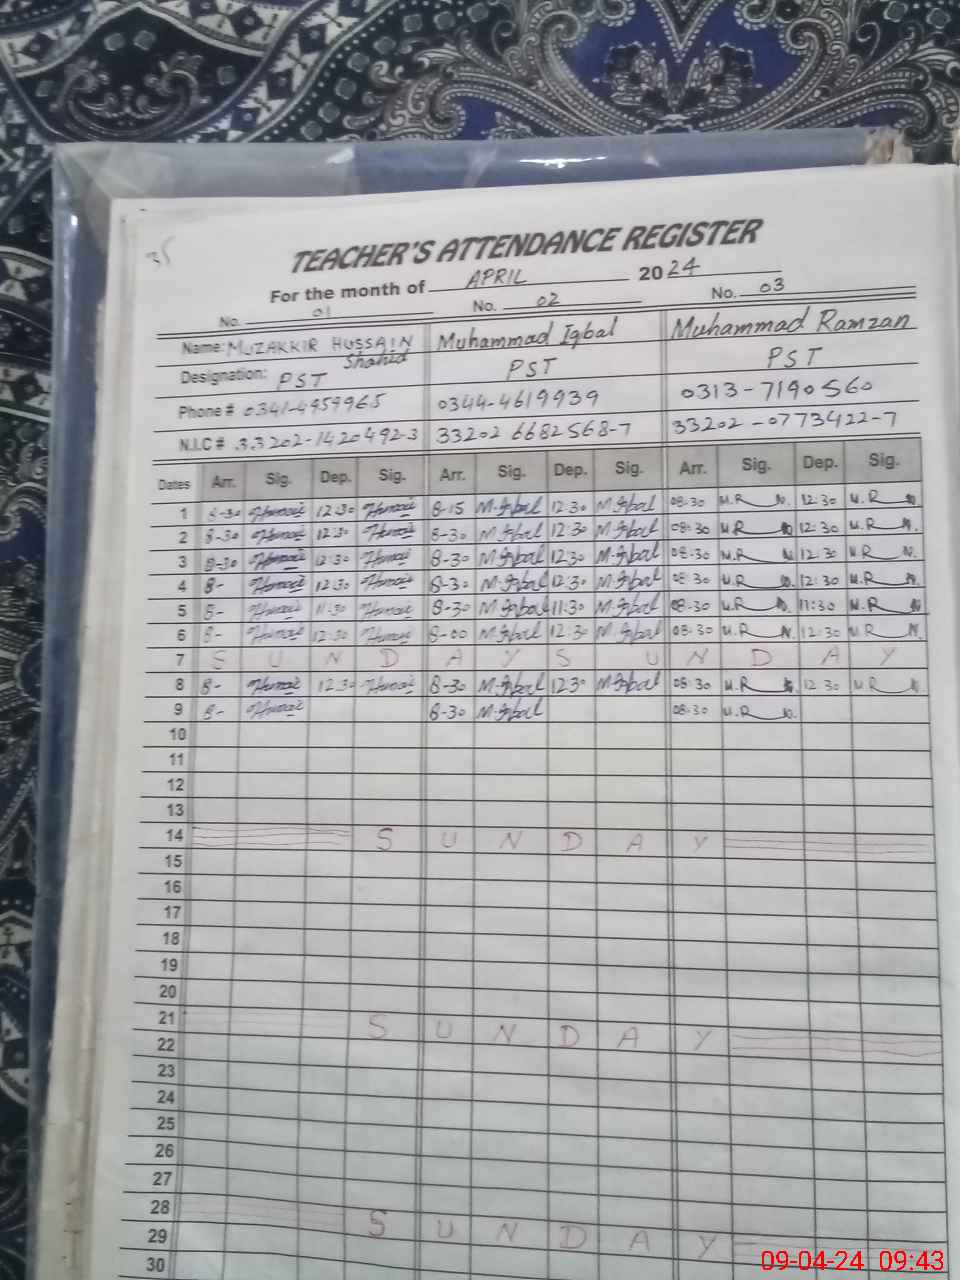 35
TEACHER'S ATTENDANCE REGISTER
For the month of APRIL 2024
No. 01 No. 02 No. 03
Name: MUZAKKIR HUSSAIN Shahid Muhammad Iqbal Muhammad Ramzan
Designation: PST PST PST
Phone # 0341-4959965 0344-4619939 0313-7190560
N.I.C # 33202-1420492-3 33202 6682568-7 33202-0773422-7
Dates Arr. Sig. Dep. Sig. Arr. Sig. Dep. Sig. Arr. Sig. Dep. Sig.
1 8-30 12:30 8-15 M.Iqbal 12:30 M.Iqbal 08:30 M.R 12:30 M.R
2 8-30 12:30 8-30 M.Iqbal 12:30 M.Iqbal 08:30 M.R 12:30 M.R
3 8-30 12:30 8-30 M.Iqbal 12:30 M.Iqbal 08:30 M.R 12:30 M.R
4 8- 12:30 8-30 M.Iqbal 12:30 M.Iqbal 08:30 M.R 12:30 M.R
5 8- 11:30 8-30 M.Iqbal 11:30 M.Iqbal 08:30 M.R 11:30 M.R
6 8- 12:30 8-00 M.Iqbal 12:30 M.Iqbal 08:30 M.R 12:30 M.R
7 S U N D A Y S U N D A Y
8 8- 12:30 8-30 M.Iqbal 12:30 M.Iqbal 08:30 M.R 12:30 M.R
9 8- 8-30 M.Iqbal 08:30 M.R
10
11
12
13
14 S U N D A Y
15
16
17
18
19
20
21 S U N D A Y
22
23
24
25
26
27
28 S U N D A Y
29
30
09-04-24 09:43